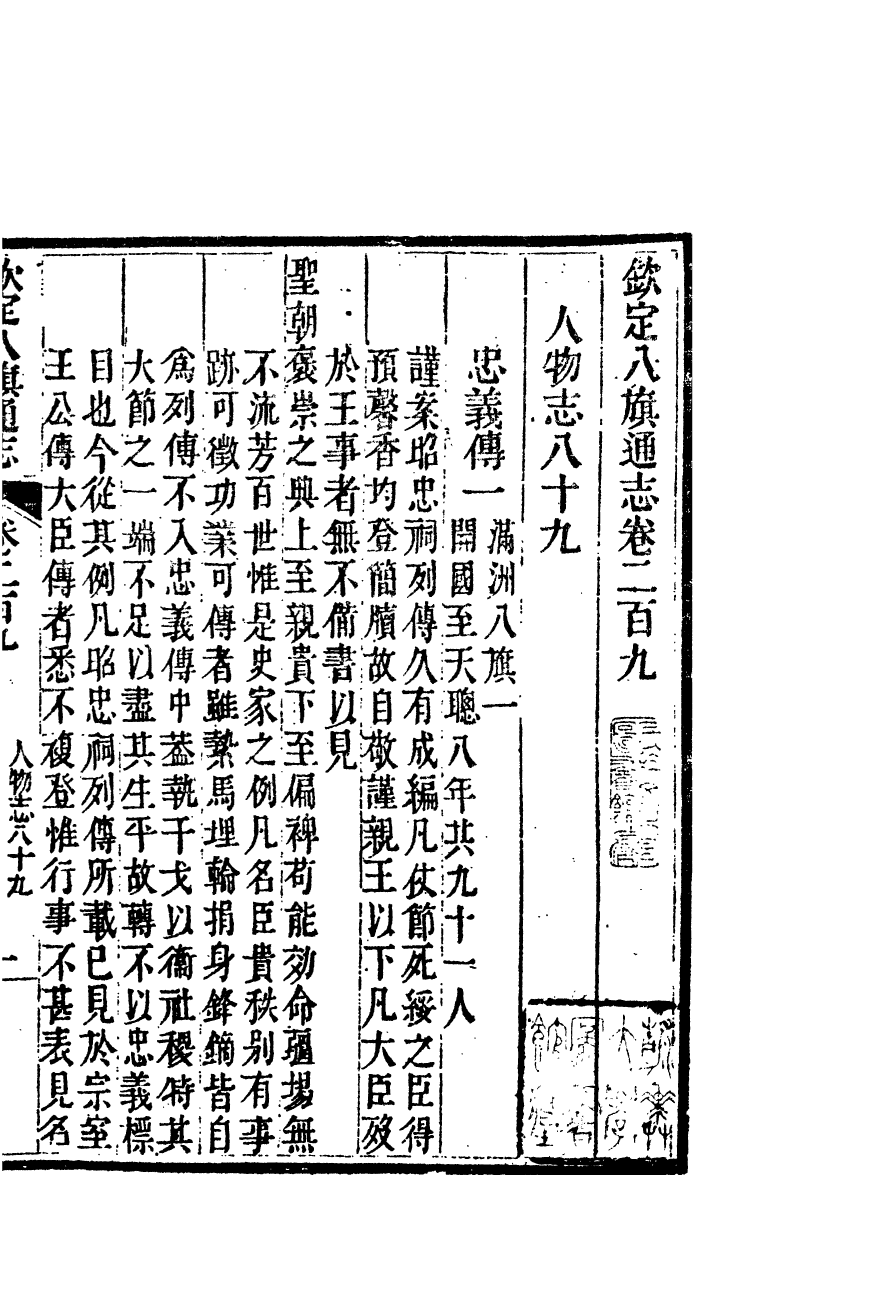 欽定八旗通志卷二百九
人物志八十九
忠義傳一
滿洲八旗一
開國至天聰八年共九十一人
謹案昭忠祠列傳久有成編凡仗節死綏之臣得
預馨香均登簡牘故自敬謹親王以下凡大臣歿
於王事者無不備書以見
聖朝褒崇之典上至親貴下至偏裨苟能効命疆場無
不流芳百世惟是史家之例凡名臣貴秩别有事
跡可徵功業可傳者雖縶馬埋輪捐身鋒鏑皆自
為列傳不入忠義傳中葢執干戈以衞社稷特其
大節之一端不足以盡其生平故轉不以忠義標
目也今從其例凡昭忠祠列傳所載已見於宗室
王公傳大臣傳者悉不複登惟行事不甚表見名
欽定八旗通志
卷二百九
人物志八十九
一